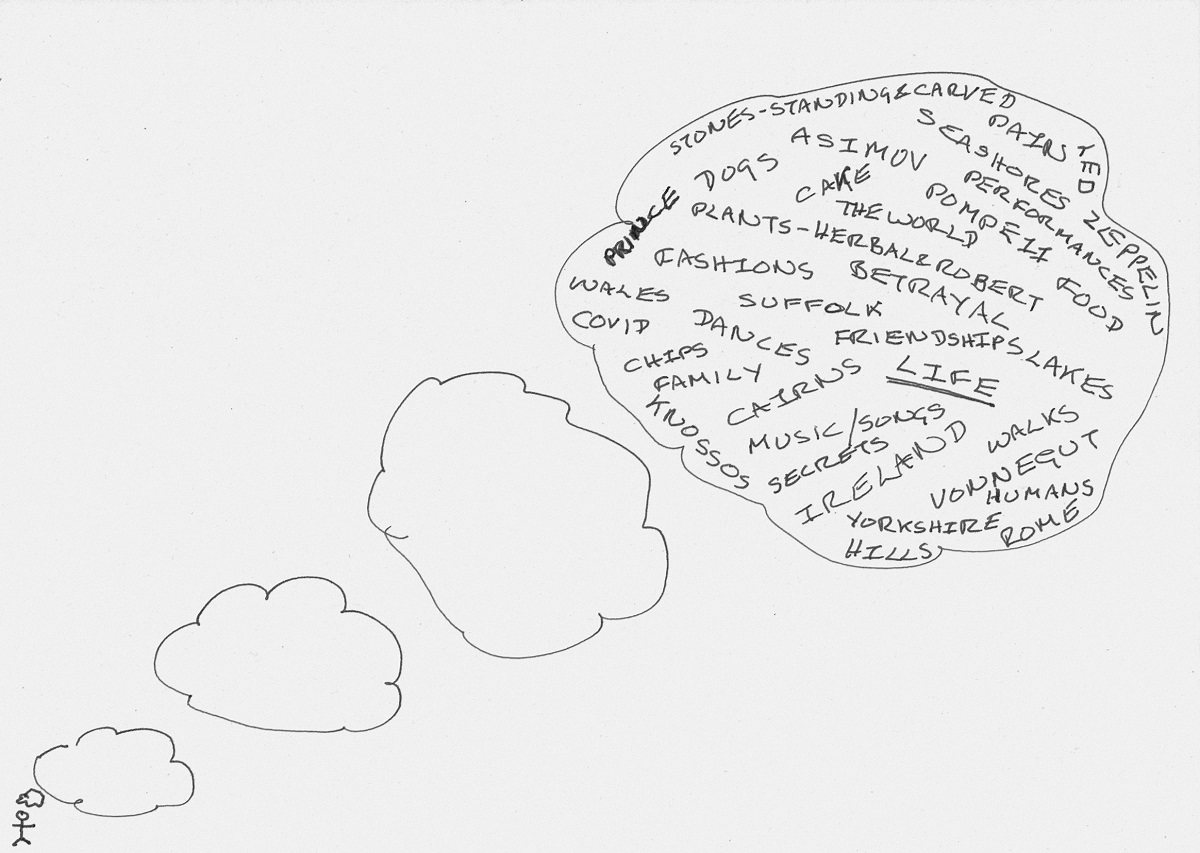 STONES-STANDING & CARVED PAINTED
SEASHORES
ASIMOV
DOGS
CAKE
PERFORMANCES
ZEPPELIN
PRINCE
THE WORLD
POMPEII
PLANTS-HERBAL & ROBERT
FASHIONS
BETRAYAL
FOOD
WALES
SUFFOLK
COVID
DANCES
FRIENDSHIPS
LAKES
CHIPS
FAMILY
CAIRNS
LIFE
KNOSSOS
MUSIC/SONGS
WALKS
SECRETS
IRELAND
VONNEGUT
HUMANS
YORKSHIRE
ROME
HILLS